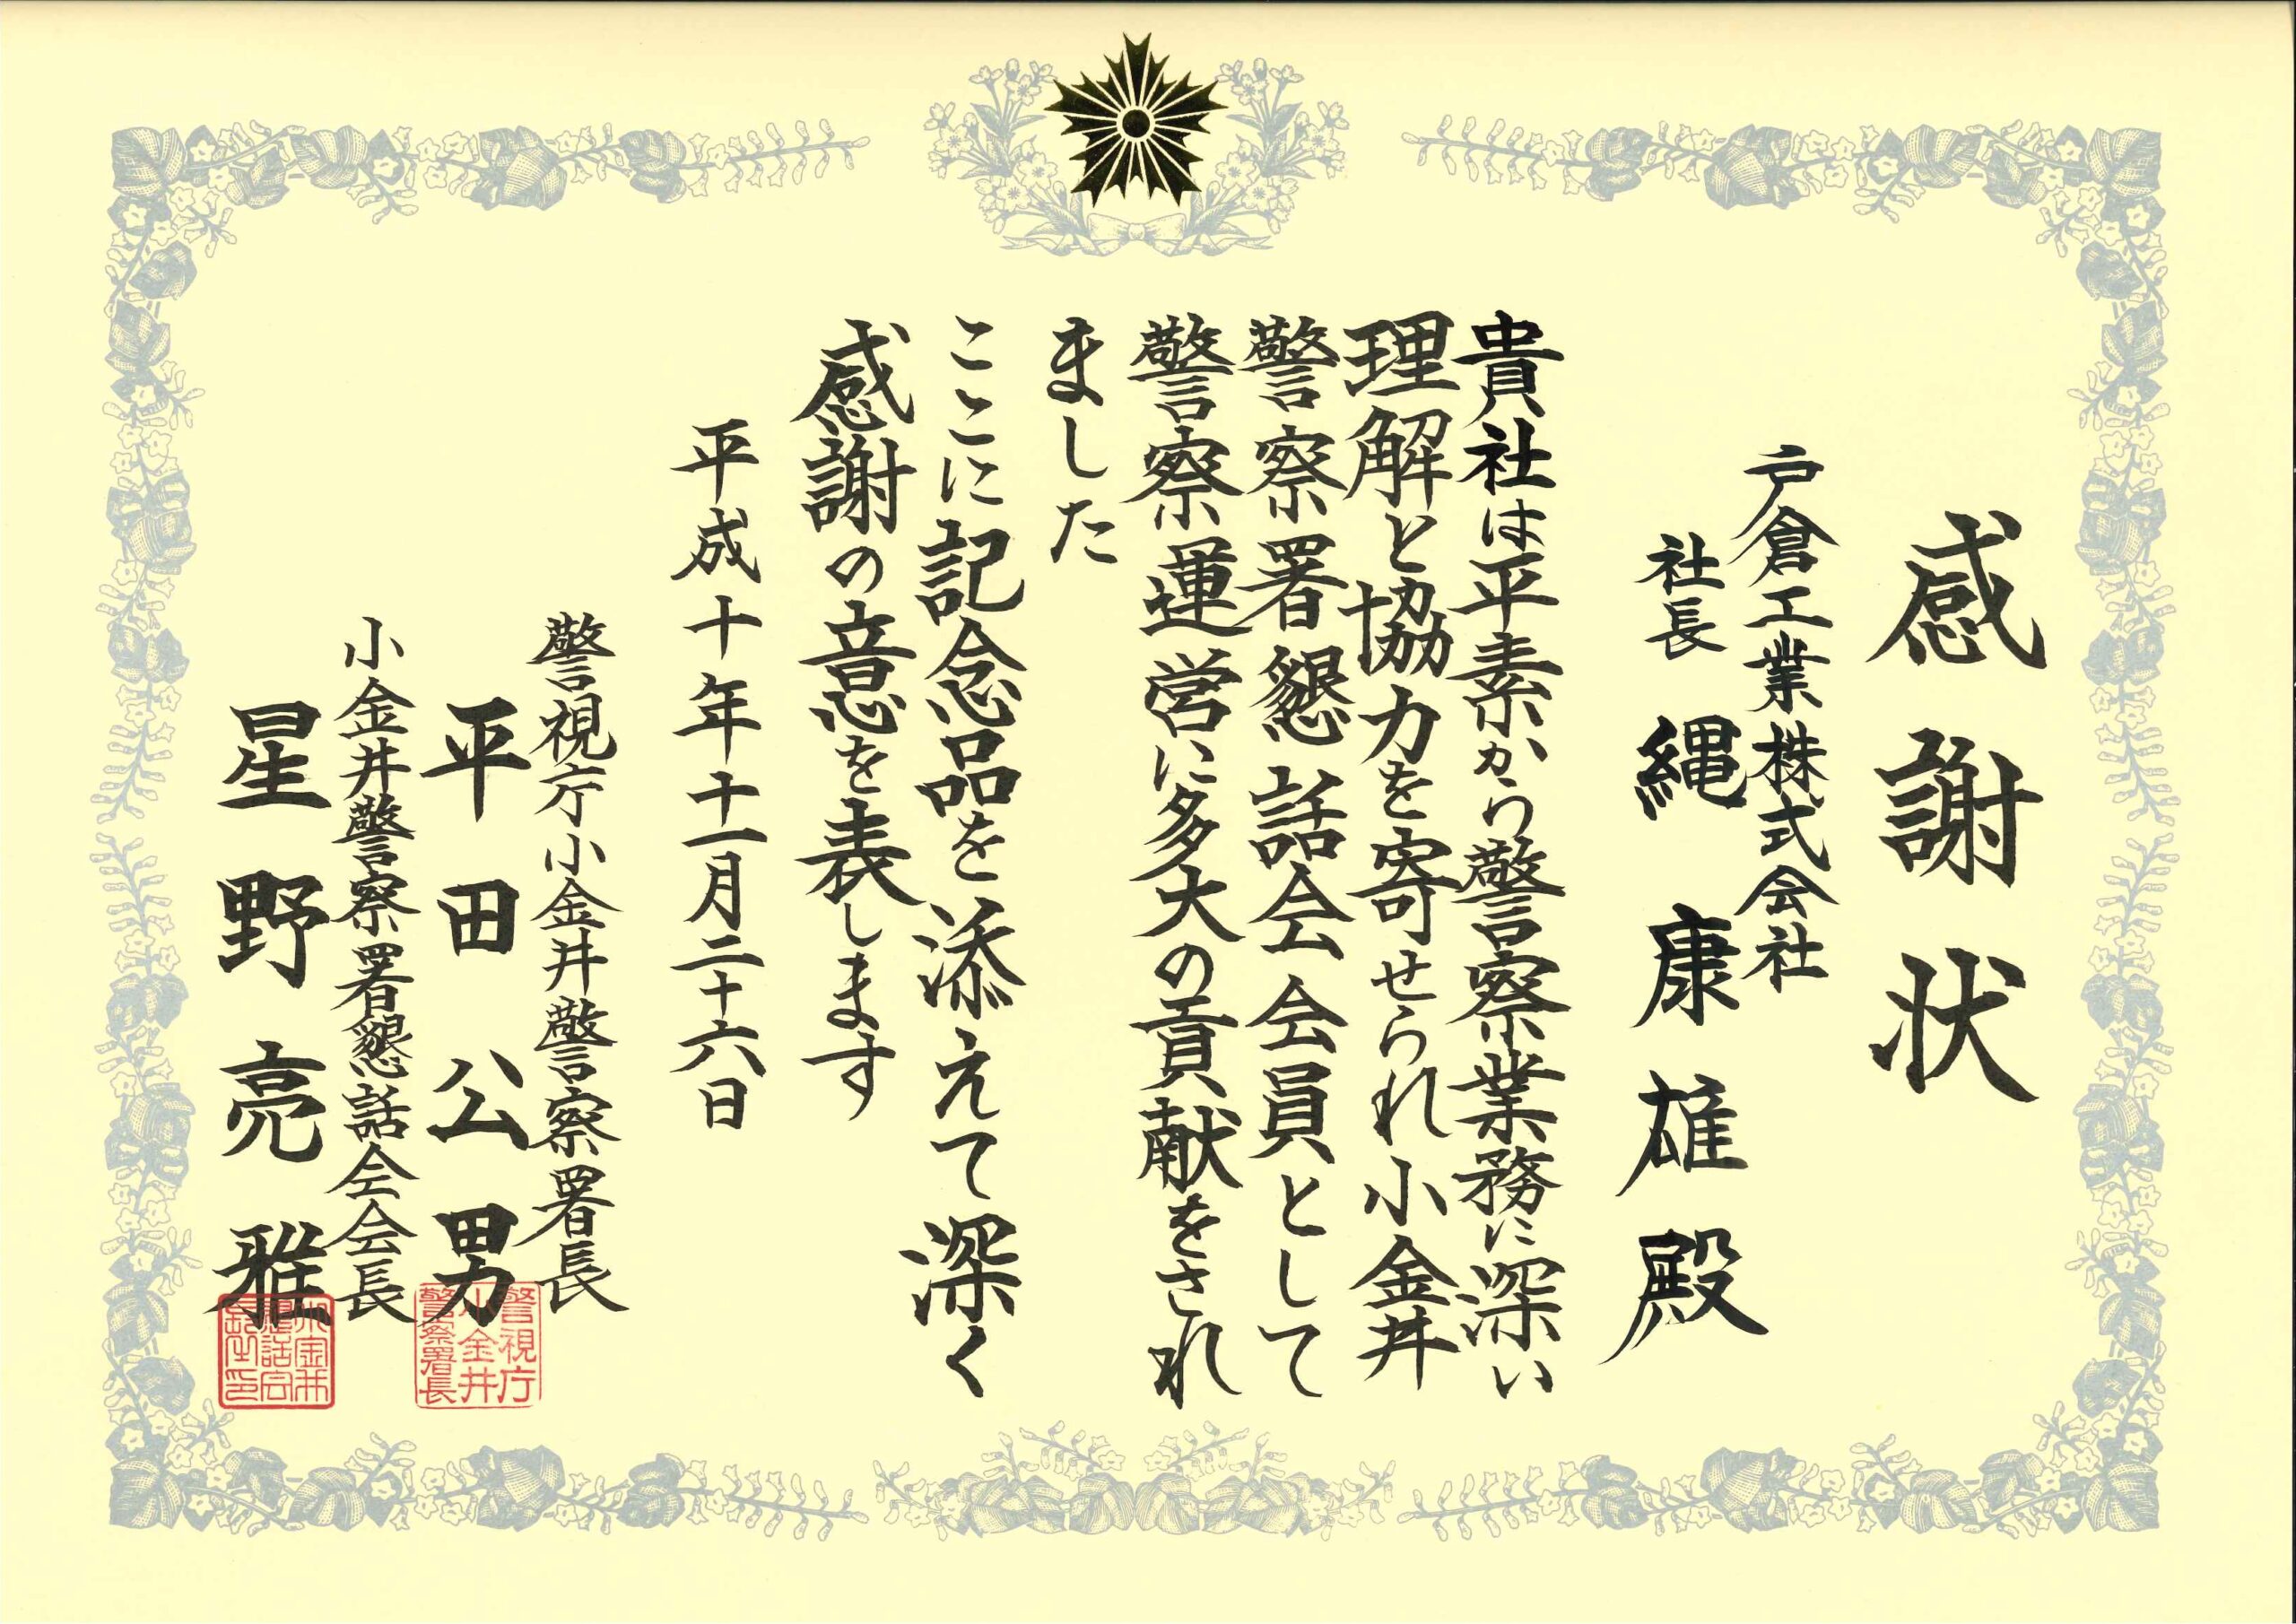 感謝状
戸倉工業株式会社
社長 縄康雄殿
貴社は平素から警察業務に深い
理解と協力を寄せられ小金井
警察署懇話会会員として
警察運営に多大の貢献をされ
ました
ここに記念品を添えて深く
感謝の意を表します
平成十年十一月二十六日
警視庁小金井警察署長
平田公男
警視庁
小金井
警察署長
小金井警察署懇話会会長
星野亮雅